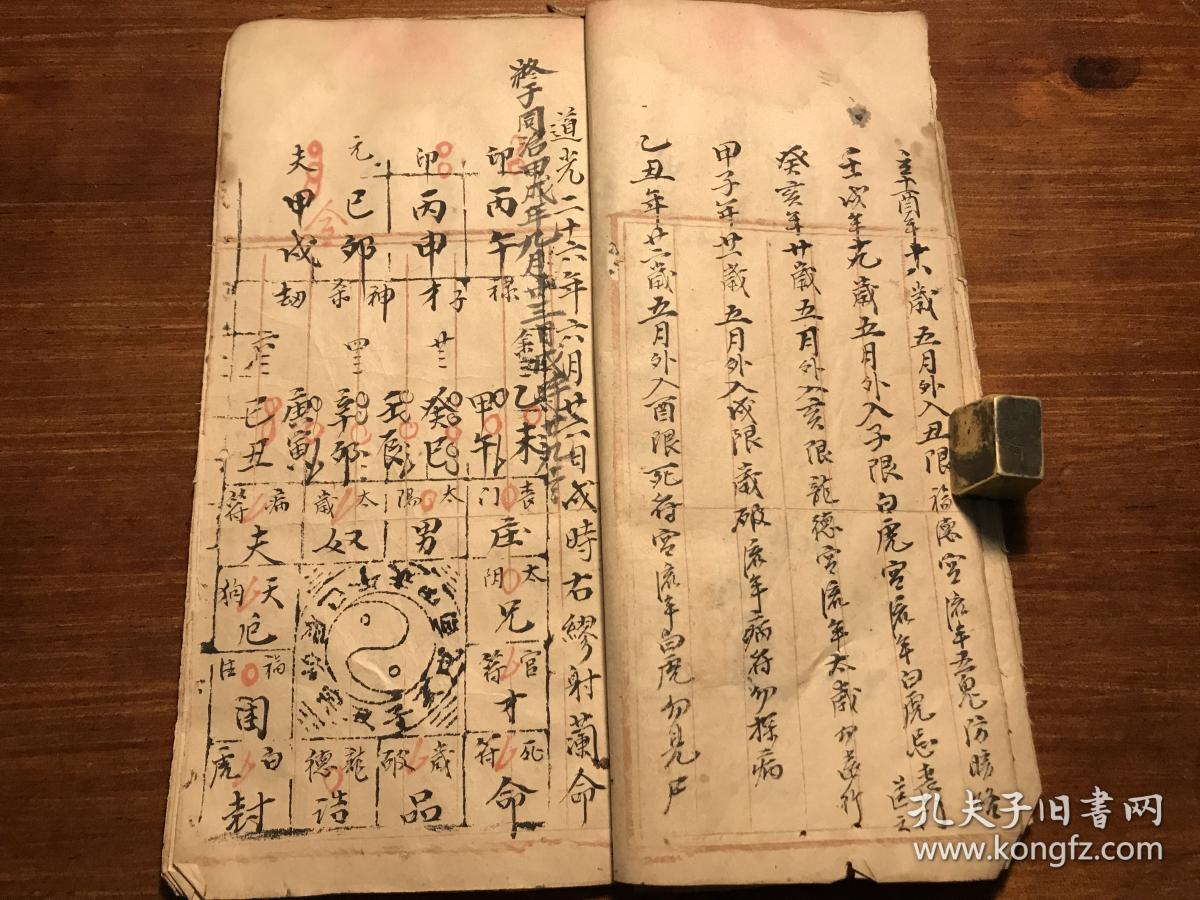 辛酉年十八歲五月外入丑限福德宮流年五鬼防
壬戌年十九歲五月外入子限白虎宮流年白虎忌
癸亥年廿歲五月外入亥限龍德宮流年太歲勿遠行
甲子年廿一歲五月外入戌限歲破流年病符勿探病
乙丑年廿二歲五月外入酉限死符宮流年白虎勿見尸
道光二十六年六月廿六日戌時右繆射蘭命
終于同治甲戌年九月
卯 卯 元 夫
丙午 丙申 己卯 甲戌
祿 子才 神杀 劫
廿三 四三
乙未 甲午 癸巳 壬辰 辛卯 庚寅 己丑
喪門 太陽 太歲 病符
庄 男 奴 夫
太阴 天狗
兄 厄
官符 福德
才 困
死符 歲破 龍德 白虎
命 品 诰 封
孔夫子旧书网
www.kongfz.com